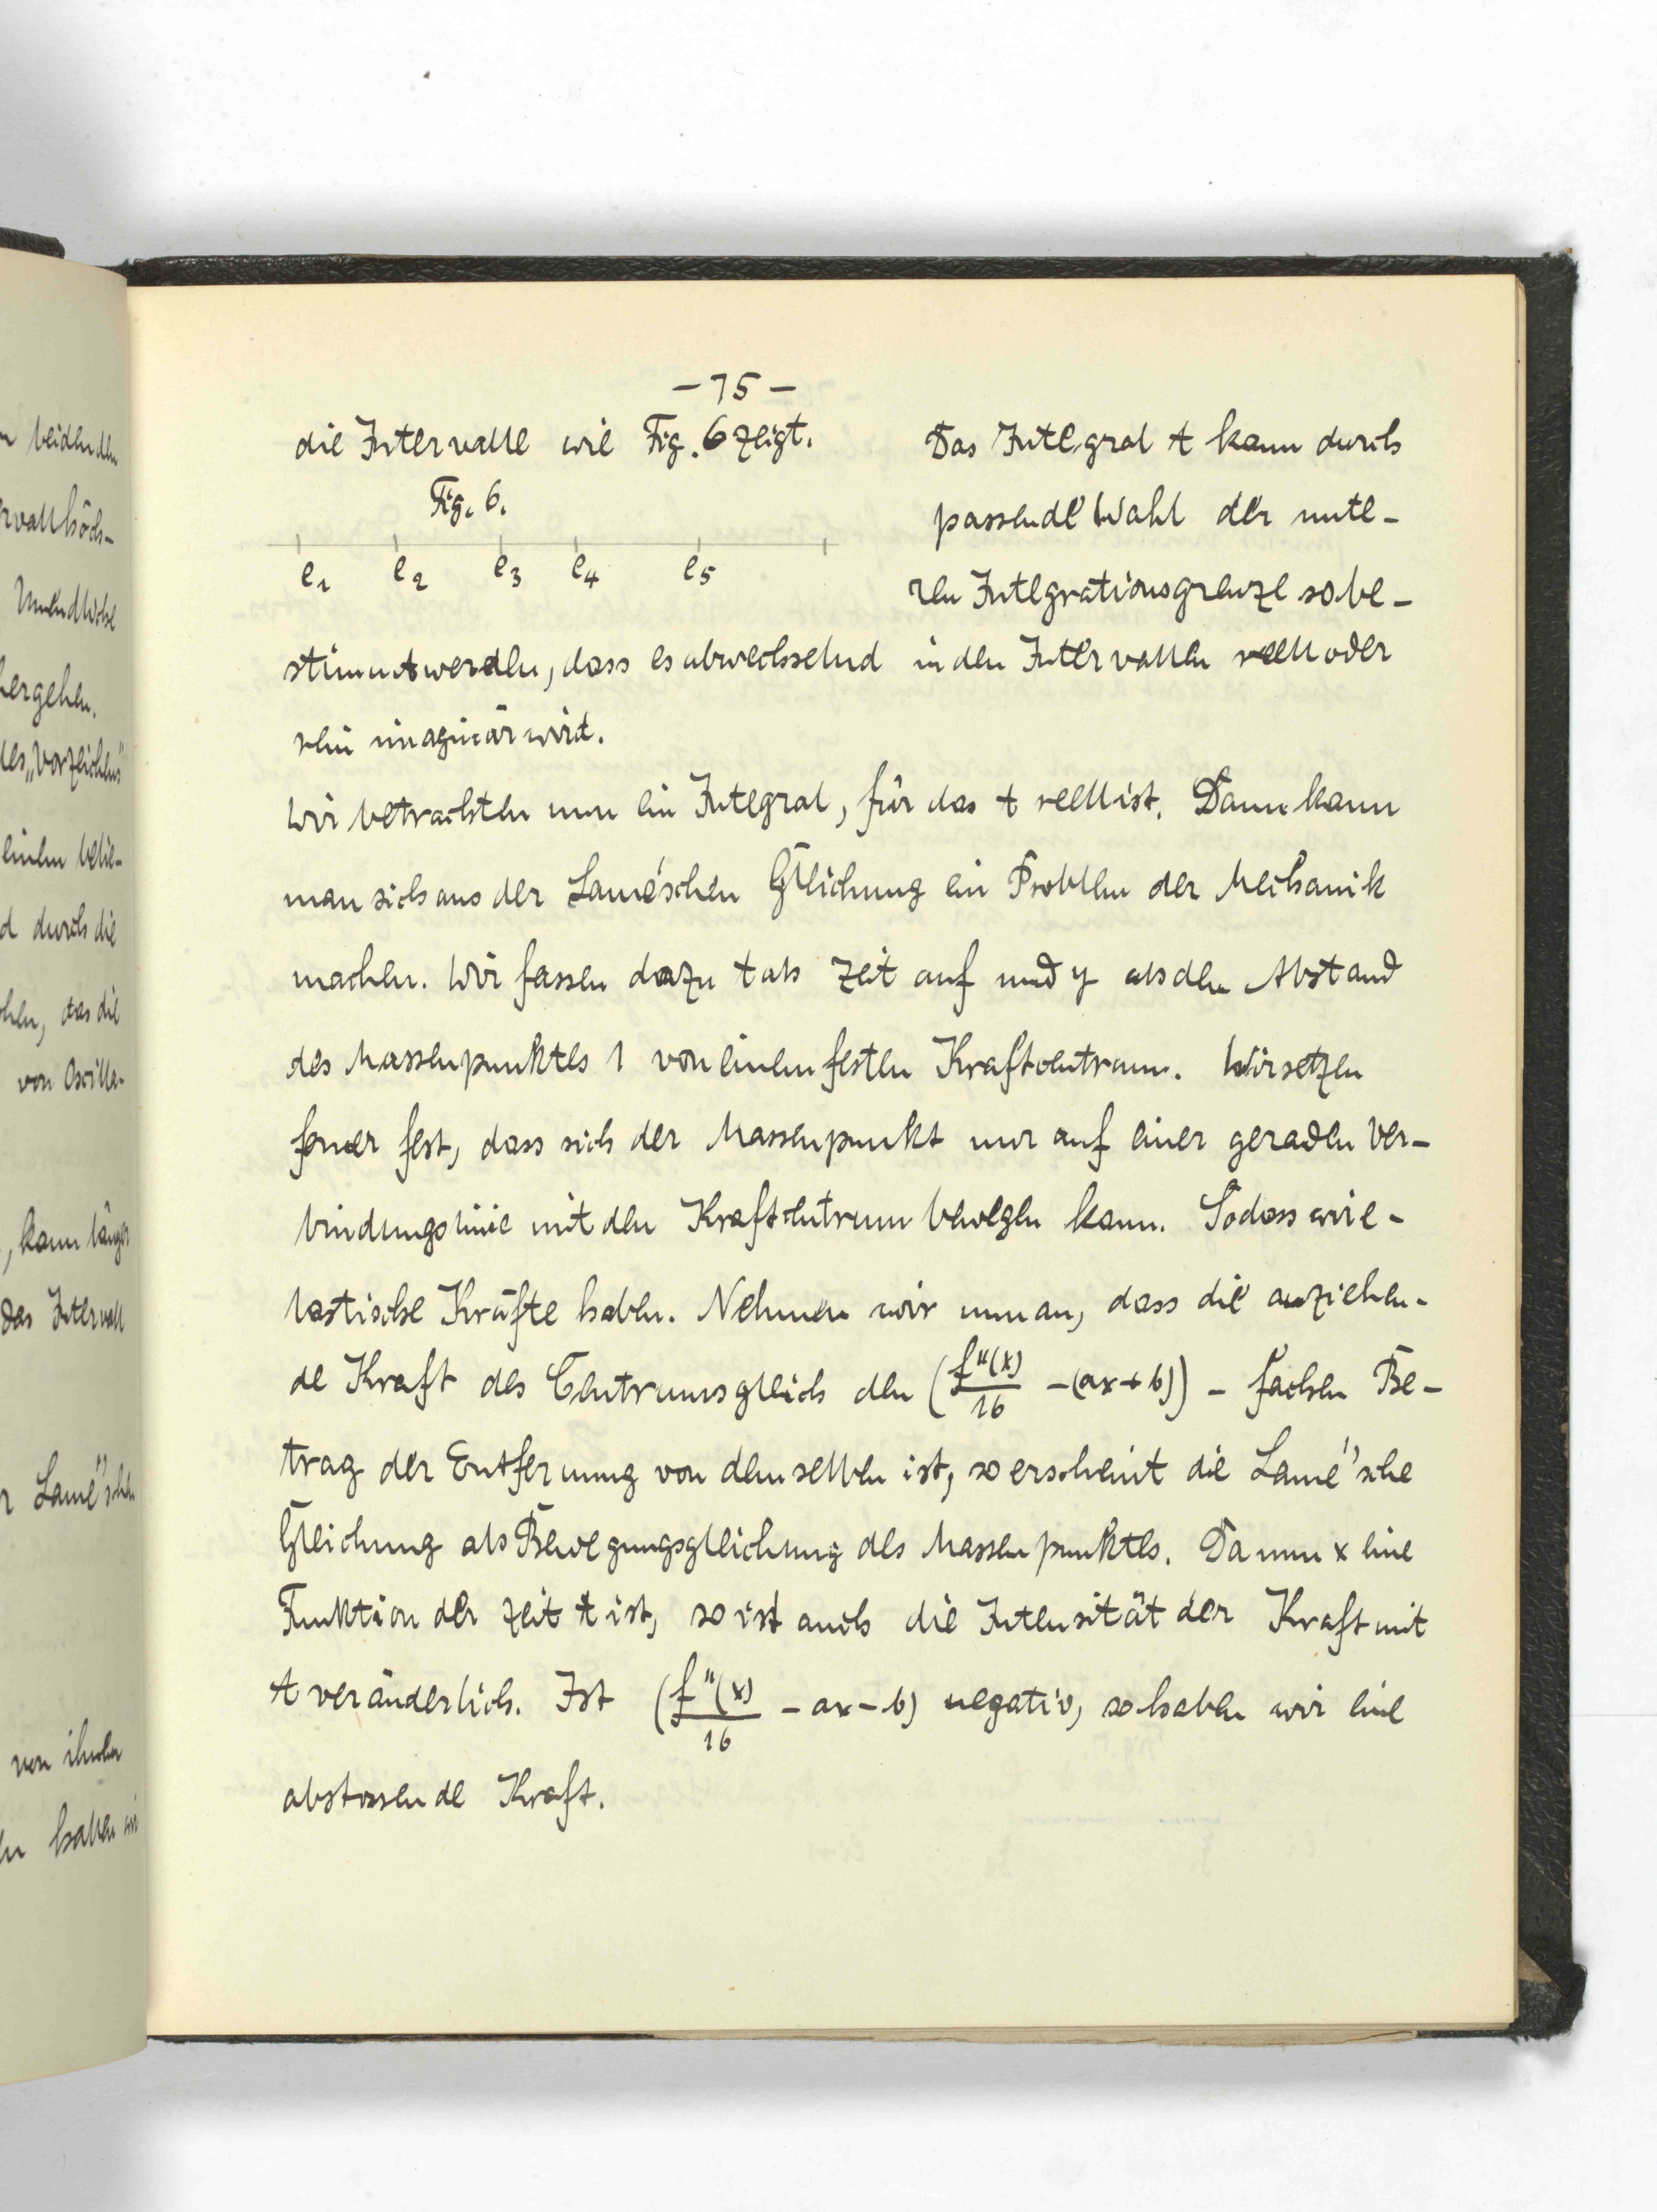 - 75 -
die Intervalle wie Fig. 6 zeigt.
Fig. 6.
e1 e2 e3 e4 e5
Das Integral t kann durch
passende Wahl der unte-
ren Integrationsgrenze so be-
stimmt werden, dass es abwechselnd in den Intervallen reell oder
rein imaginär wird.
Wir betrachten nun ein Integral, für das t reell ist. Dann kann
man sich aus der Lamé'schen Gleichung ein Problem der Mechanik
machen. Wir fassen dazu t als Zeit auf und y als den Abstand
des Massenpunktes 1 von einem festen Kraftcentrum. Wir setzen
ferner fest, dass sich der Massenpunkt nur auf einer geraden Ver-
bindungslinie mit dem Kraftcentrum bewegen kann. Sodass wir e-
lastische Kräfte haben. Nehmen wir nun an, dass die anziehen-
de Kraft des Centrums gleich dem (f''(x)/16 - (ax + b)) - fachen Be-
trag der Entfernung von demselben ist, so erscheint die Lamé'sche
Gleichung als Bewegungsgleichung des Massenpunktes. Da nun x eine
Funktion der Zeit t ist, so ist auch die Intensität der Kraft mit
t veränderlich. Ist (f''(x)/16 - ax - b) negativ, so haben wir eine
abstossende Kraft.